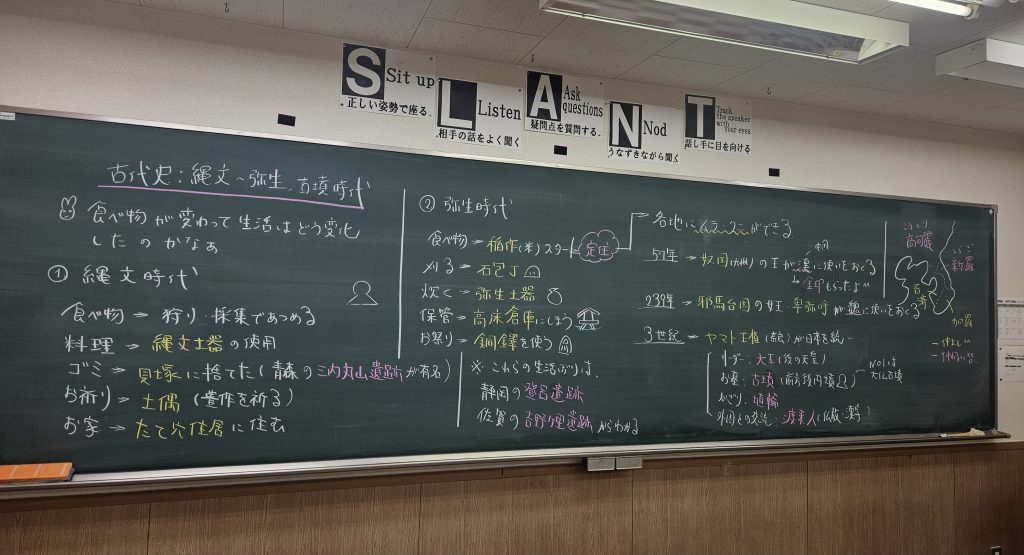 S Sit up
正しい姿勢で座る。
L Listen
相手の話をよく聞く
A Ask questions
疑問点を質問する。
N Nod
うなずきながら聞く
T Track the speaker with your eyes
話し手に目を向ける
古代史:縄文〜弥生、古墳時代
食べ物が変わって生活はどう変化
したのかなぁ
① 縄文時代
食べ物 ⇒ 狩り・採集であつめる
料理 ⇒ 縄文土器の使用
ゴミ ⇒ 貝塚に捨てた(青森の三内丸山遺跡が有名)
お祈り ⇒ 土偶(豊作を祈る)
お家 ⇒ たて穴住居に住む
② 弥生時代
食べ物 ⇒ 稲作(米)スタート 定住
刈る ⇒ 石包丁
炊く ⇒ 弥生土器
保管 ⇒ 高床倉庫にしまう
お祭り ⇒ 銅鐸を使う
※ これらの生活ぶりは、
静岡の登呂遺跡
佐賀の吉野ヶ里遺跡からわかる
各地にムラ〜クニができる
57年 ⇒ 奴国(九州)の王が漢に使いをおくる
中国
金印もらったよ
239年 ⇒ 邪馬台国の女王・卑弥呼が魏に使いをおくる
3世紀 ⇒ ヤマト王権(奈良)が日本を統一
リーダー:大王(後の天皇)
お墓:古墳(前方後円墳)
No1は
大仙古墳
かざり:埴輪
外国との交流:渡来人
高句麗
新羅
百済
加羅